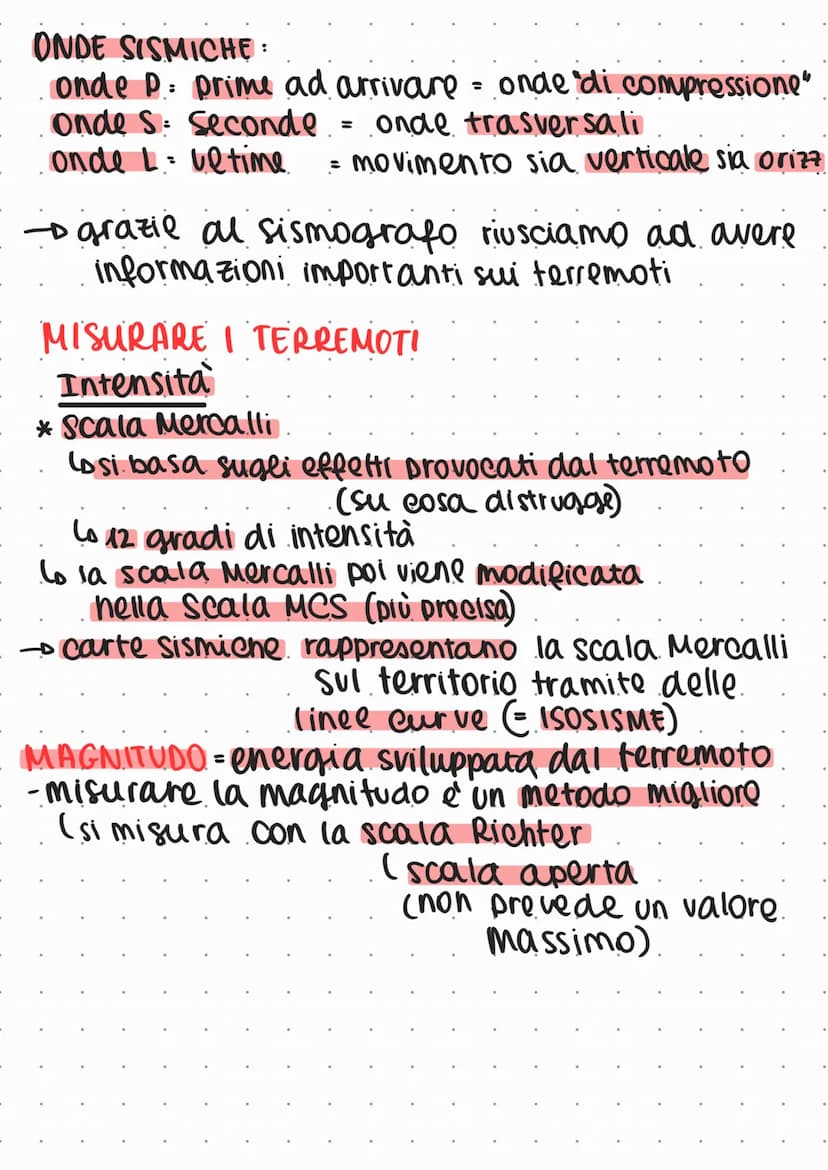 ONDE SISMICHE:
onde P: prime ad arrivare = onde "di compressione"
onde S: Seconde = onde trasversali
onde L: ultime = movimento sia verticale sia orizz
→ grazie al sismografo riusciamo ad avere
informazioni importanti sui terremoti
MISURARE I TERREMOTI
Intensità
* Scala Mercalli
↳ si basa sugli effetti provocati dal terremoto
(su cosa distrugge)
↳ 12 gradi di intensità
↳ la scala Mercalli poi viene modificata
nella Scala MCS (più precisa)
→ carte sismiche rappresentano la scala Mercalli
sul territorio tramite delle
linee curve (= ISOSISME)
MAGNITUDO = energia sviluppata dal terremoto
- misurare la magnitudo è un metodo migliore
(si misura con la scala Richter
( scala aperta
(non prevede un valore
massimo)